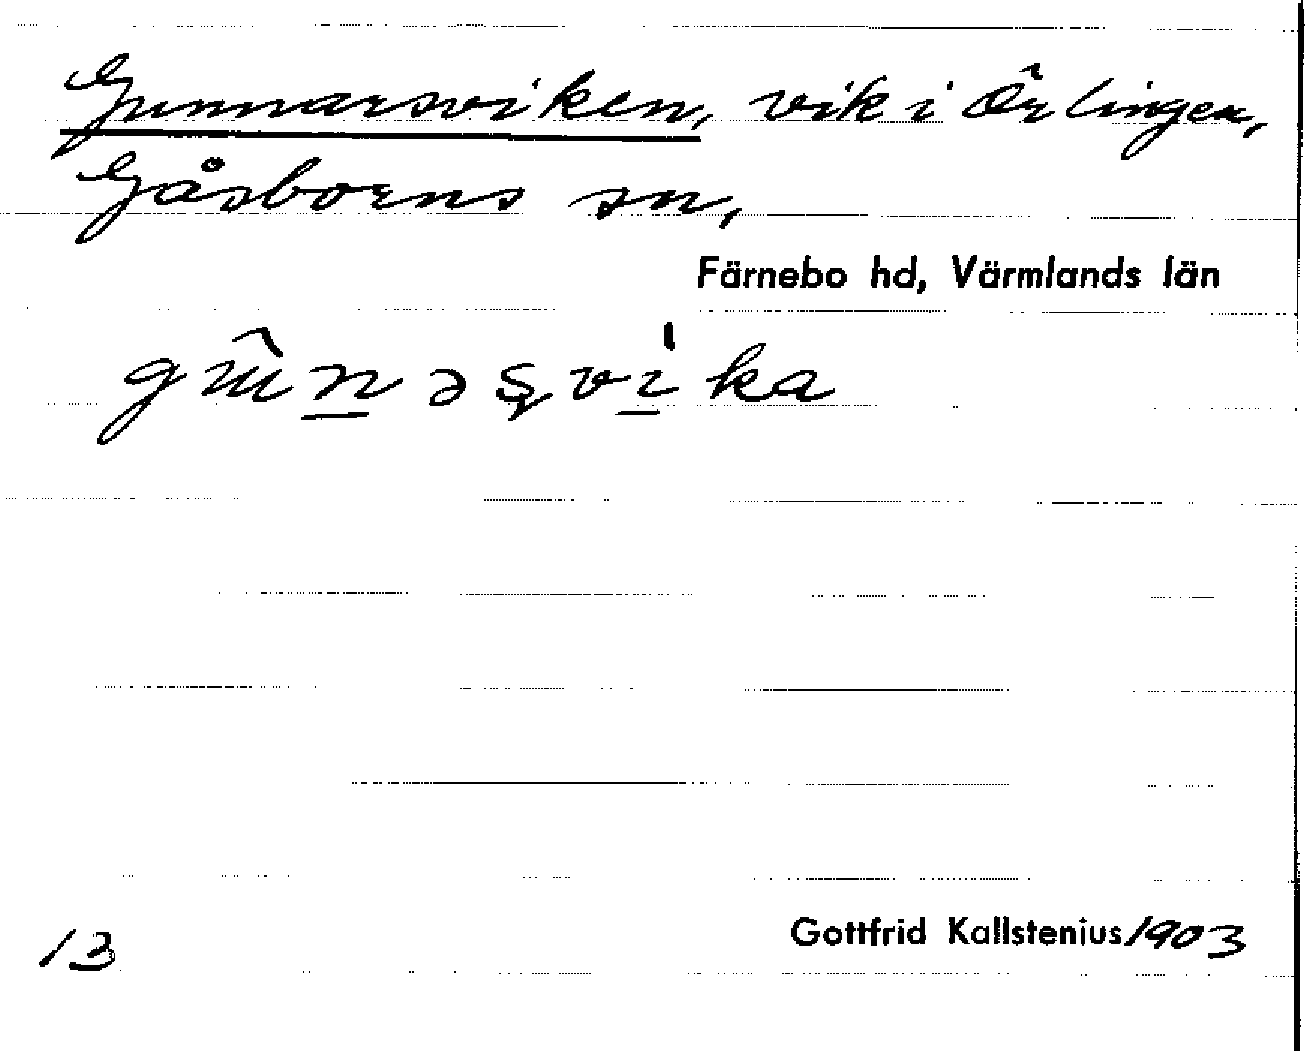 Gunnarsviken, vik i Örlingen,
Gåsborns sn,
Färnebo hd, Värmlands län
13
Gottfrid Kallstenius 1903